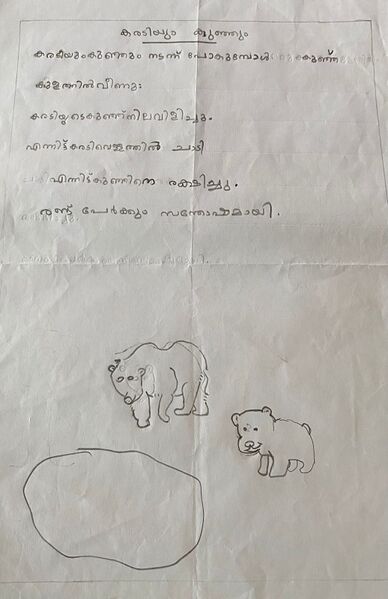 കരടിയും കുഞ്ഞും
കരടിയുംകുഞ്ഞും നടന്ന് പോകുമ്പോൾ കുഞ്ഞ്
കുളത്തിൽവീണു:
കരടിയുടെകുഞ്ഞ്നിലവിളിച്ചു.
എന്നിട്ട്കരടിവെള്ളത്തിൽ ചാടി
എന്നിട്ട്കുഞ്ഞിനെ രക്ഷിച്ചു.
രണ്ട് പേർക്കും സന്തോഷമായി.